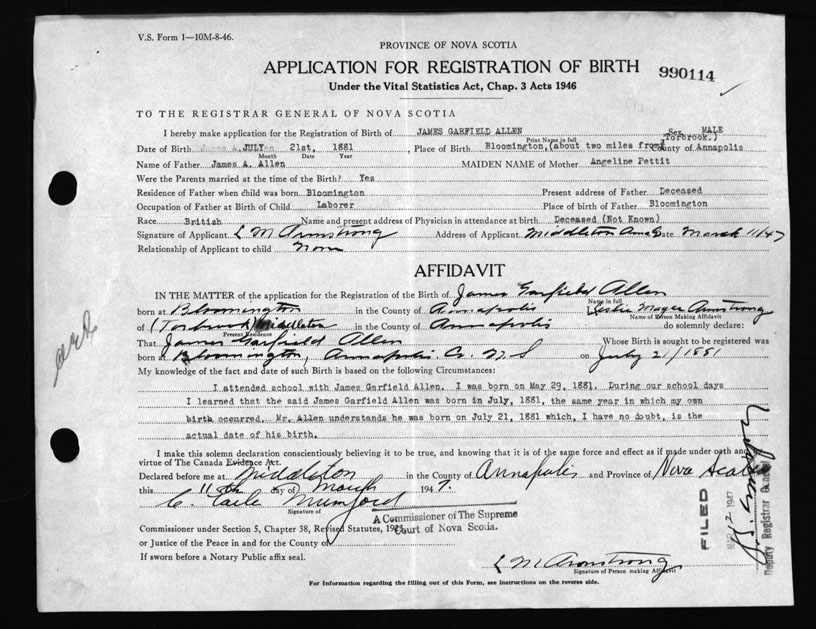 V.S. Form 1—10M-8-46.
PROVINCE OF NOVA SCOTIA
APPLICATION FOR REGISTRATION OF BIRTH 990114
Under the Vital Statistics Act, Chap. 3 Acts 1946
TO THE REGISTRAR GENERAL OF NOVA SCOTIA
I hereby make application for the Registration of Birth of JAMES GARFIELD ALLEN Sex MALE
Print Name in full Torbrook.)
Date of Birth JULY 21st, 1881, Place of Birth Bloomington, (about two miles from County of Annapolis
Month Date Year
Name of Father James A. Allen MAIDEN NAME of Mother Angeline Pettit
Were the Parents married at the time of the Birth? Yes
Residence of Father when child was born Bloomington Present address of Father Deceased
Occupation of Father at Birth of Child Laborer Place of birth of Father Bloomington
Race British Name and present address of Physician in attendance at birth Deceased (Not Known)
Signature of Applicant L M Armstrong Address of Applicant Middleton Anna Date March 11/47
Relationship of Applicant to child None
AFFIDAVIT
IN THE MATTER of the application for the Registration of the Birth of James Garfield Allen
Name in full
born at Bloomington in the County of Annapolis I, Leslie Armstrong
Name of Person Making Affidavit
of (Torbrook) Middleton in the County of Annapolis do solemnly declare:
Present Residence
That James Garfield Allen Whose Birth is sought to be registered was
born at Bloomington, Annapolis Co. N S on July 21/1881
My knowledge of the fact and date of such Birth is based on the following Circumstances:
I attended school with James Garfield Allen. I was born on May 29, 1881. During our school days
I learned that the said James Garfield Allen was born in July, 1881, the same year in which my own
birth occurred. Mr. Allen understands he was born on July 21, 1881 which, I have no doubt, is the
actual date of his birth.
I make this solemn declaration conscientiously believing it to be true, and knowing that it is of the same force and effect as if made under oath and
virtue of The Canada Evidence Act.
Declared before me at Middleton in the County of Annapolis and Province of Nova Scotia
this 11th day of March 1947.
C. Mumford
Signature of
A Commissioner of The Supreme
Court of Nova Scotia.
Commissioner under Section 5, Chapter 38, Revised Statutes, 1923
or Justice of the Peace in and for the County of
If sworn before a Notary Public affix seal.
L M Armstrong
Signature of Person making Affidavit
For Information regarding the filling out of this Form, see Instructions on the reverse side.
FILED
1947
Deputy Registrar General